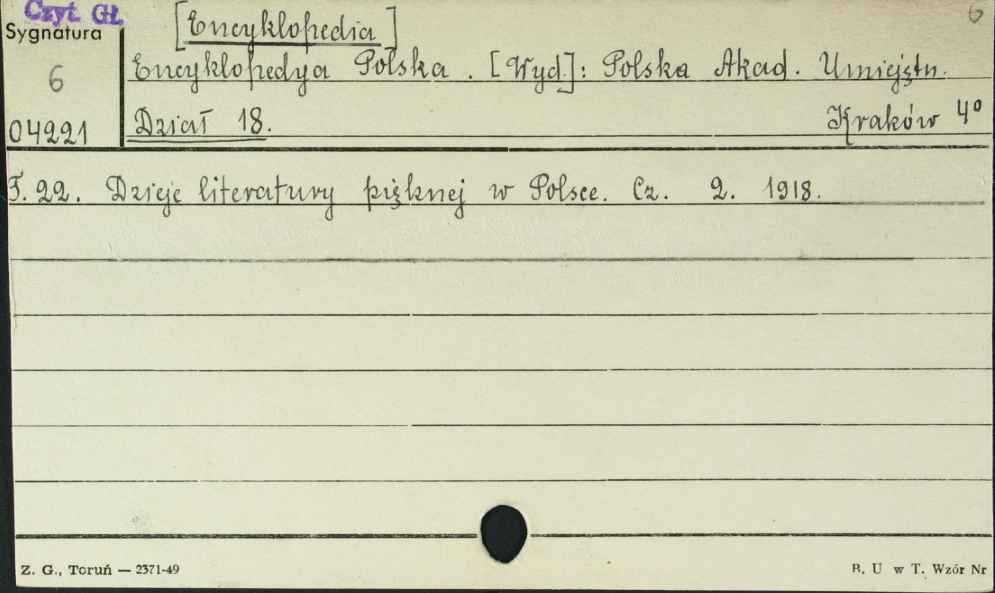 Czyt. Gł. [Encyklopedia] 6
Sygnatura
6 Encyklopedya Polska. [Wyd]: Polska Akad. Umiejętn.
04221 Dział 18. Kraków 4°
T. 22. Dzieje literatury pięknej w Polsce. Cz. 2. 1918.
Z. G., Toruń — 2371-49 B. U w T. Wzór Nr